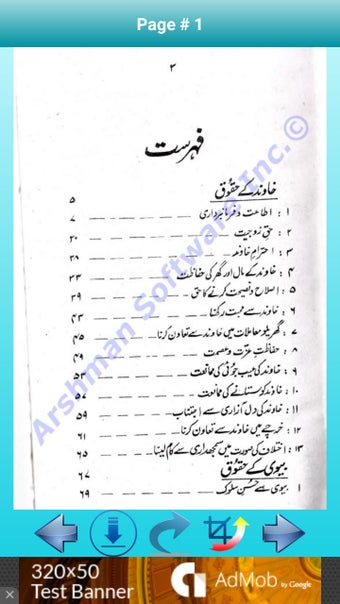 Page # 1
۳
فہرست
خاوند کے حقوق ۵
۱ : اطاعت و فرمانبرداری ۷
۲ : حقِ زوجیت ۲۰
۳ : احترامِ خاوند ۲۸
۴ : خاوند کے مال اور گھر کی حفاظت ۳۳
۵ : اصلاح و نصیحت کرنے کا حق ۳۹
۶ : خاوند سے محبت رکھنا ۴۳
۷ : گھریلو معاملات میں خاوند سے تعاون کرنا ۴۵
۸ : حفاظتِ عزت و عصمت
۹ : خاوند کی عیب جوئی کی ممانعت ۵۳
۱۰ : خاوند کو ستانے کی ممانعت ۵۷
۱۱ : خاوند کی دل آزاری سے اجتناب ۵۹
۱۲ : خرچے میں خاوند سے تعاون کرنا ۶۱
۱۳ : اختلاف کی صورت میں سمجھداری سے کام لینا ۶۵
بیوی کے حقوق ۶۷
۱ : بیوی سے حُسنِ سلوک ۶۹
Arshman Software Inc.©
320x50
Test Banner
AdMob by Google